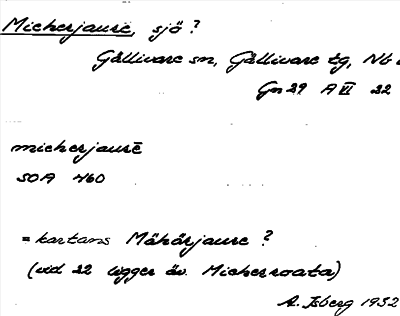 Micherjaure, sjö?
Gällivare sn, Gällivare tg, Nb
Gm 29 A VI 22
micherjaurē
SOA 460
= kartans Mähärjaure ?
(vid 22 ligger äv. Micherroata)
A. Isberg 1932